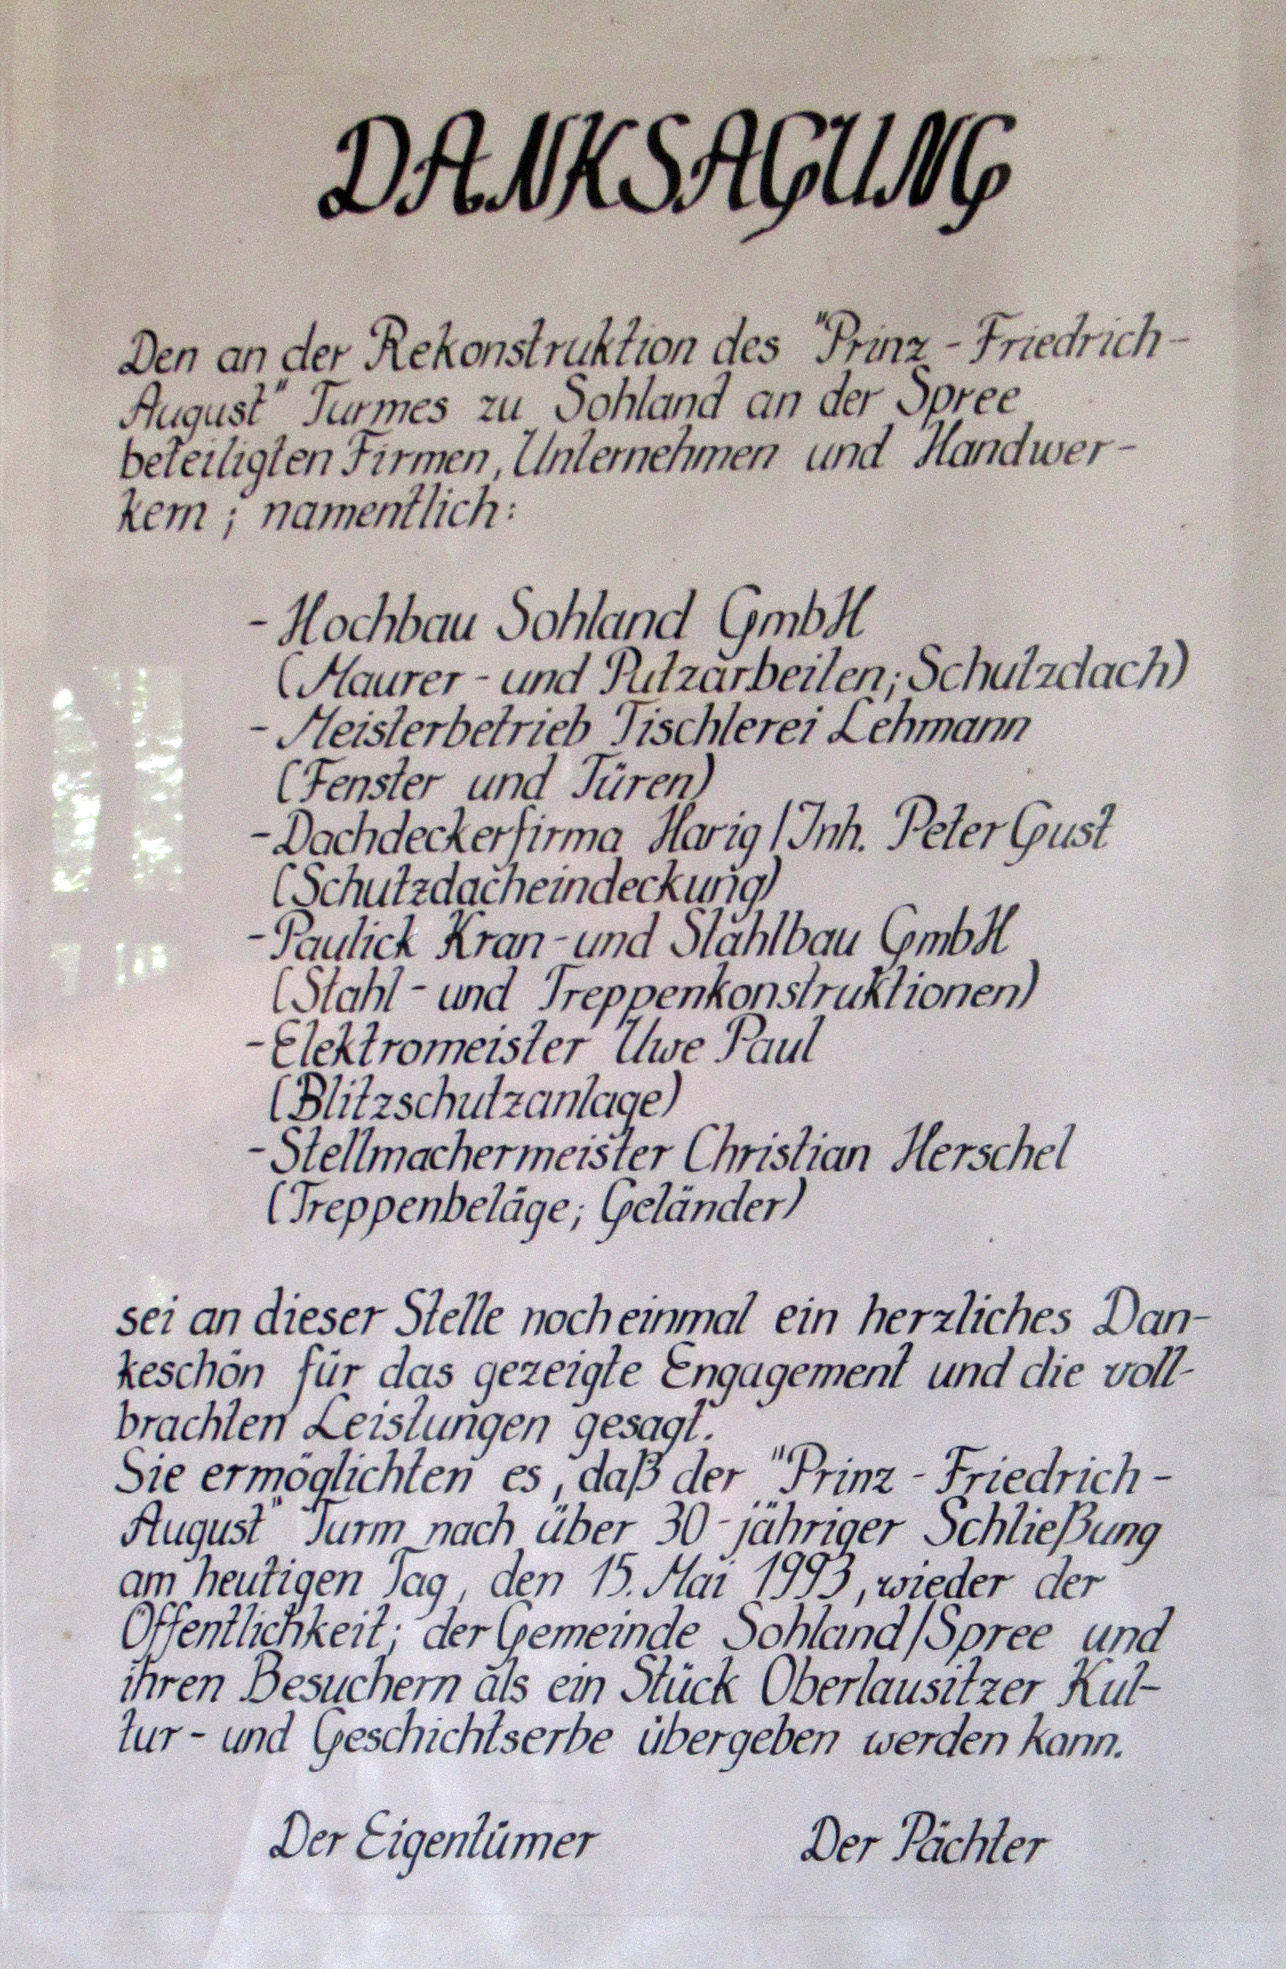 DANKSAGUNG
Den an der Rekonstruktion des "Prinz - Friedrich -
August" Turmes zu Sohland an der Spree
beteiligten Firmen, Unternehmen und Handwer-
kern ; namentlich:
- Hochbau Sohland GmbH
(Maurer - und Putzarbeiten; Schutzdach)
- Meisterbetrieb Tischlerei Lehmann
(Fenster und Türen)
- Dachdeckerfirma Harig / Inh. Peter Gust
(Schutzdacheindeckung)
- Paulick Kran - und Stahlbau GmbH
(Stahl - und Treppenkonstruktionen)
- Elektromeister Uwe Paul
(Blitzschutzanlage)
- Stellmachermeister Christian Herschel
(Treppenbeläge; Geländer)
sei an dieser Stelle noch einmal ein herzliches Dan-
keschön für das gezeigte Engagement und die voll-
brachten Leistungen gesagt.
Sie ermöglichten es, daß der "Prinz - Friedrich -
August" Turm nach über 30 - jähriger Schließung
am heutigen Tag, den 15. Mai 1993, wieder der
Öffentlichkeit; der Gemeinde Sohland/Spree und
ihren Besuchern als ein Stück Oberlausitzer Kul-
tur - und Geschichtserbe übergeben werden kann.
Der Eigentümer Der Pächter